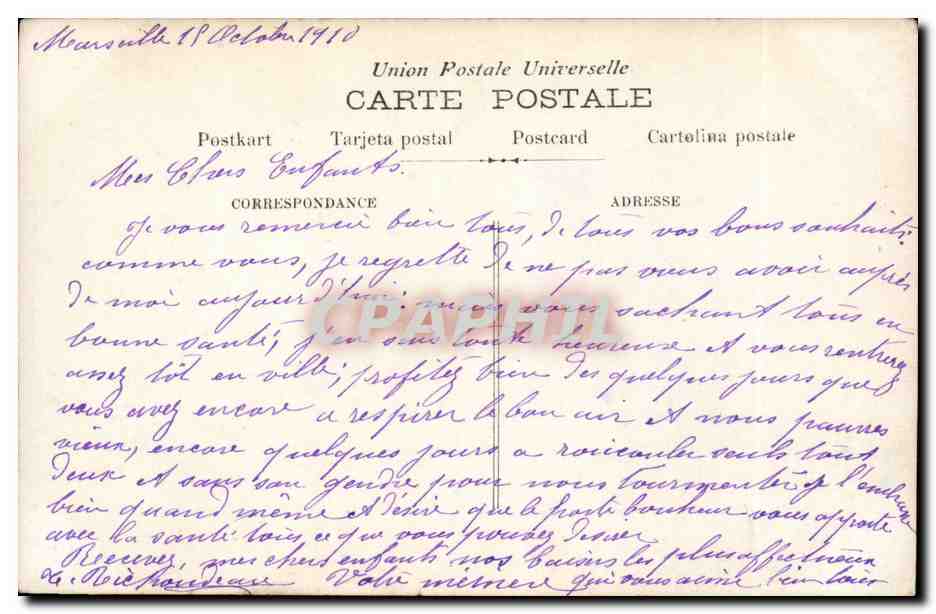 Marseille 15 Octobre 1910
Union Postale Universelle
CARTE POSTALE
Postkart Tarjeta postal Postcard Cartolina postale
Mes Chers Enfants.
CORRESPONDANCE ADRESSE
Je vous remercie bien tous, de tous vos bons souhaits.
comme vous, je regrette de ne pas vous avoir auprès
de moi aujourd'hui; mais vous sachant tous en
bonne santé, j'en suis toute heureuse et vous rentrerez
assez tôt en ville; profitez bien des quelques jours que
vous avez encore a respirer le bon air et nous pauvres
vieux, encore quelques jours a roucouler seuls tout
deux et sans son gendre pour nous tourmenter je l'embrasse
bien quand même et désire que le porte bonheur vous apporte
avec la santé tous ce que vous pouvez désirer
Recevez, mes chers enfants nos baisers les plus affectueux
Votre mémère qui vous aime bien tous
CPAPHIL